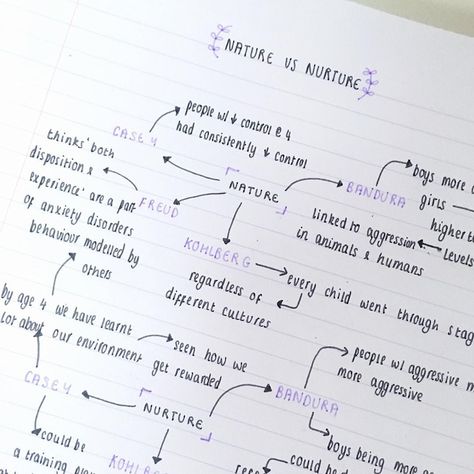 NATURE VS NURTURE
people w/ ↓ control @ 4
had consistently ↓ control
CASEY
thinks' both
disposition &
experience' are a part
of anxiety disorders
FREUD
NATURE
BANDURA
boys more
girls
higher
levels
linked to aggression
in animals & humans
KOHLBERG
every child went through
regardless of
different cultures
behaviour modelled by
others
by age 4 we have learnt
lot about our environment
seen how we
get rewarded
CASEY
NURTURE
BANDURA
people w/ aggressive
more aggressive
boys being more
could be
a training
KOHLB
could be